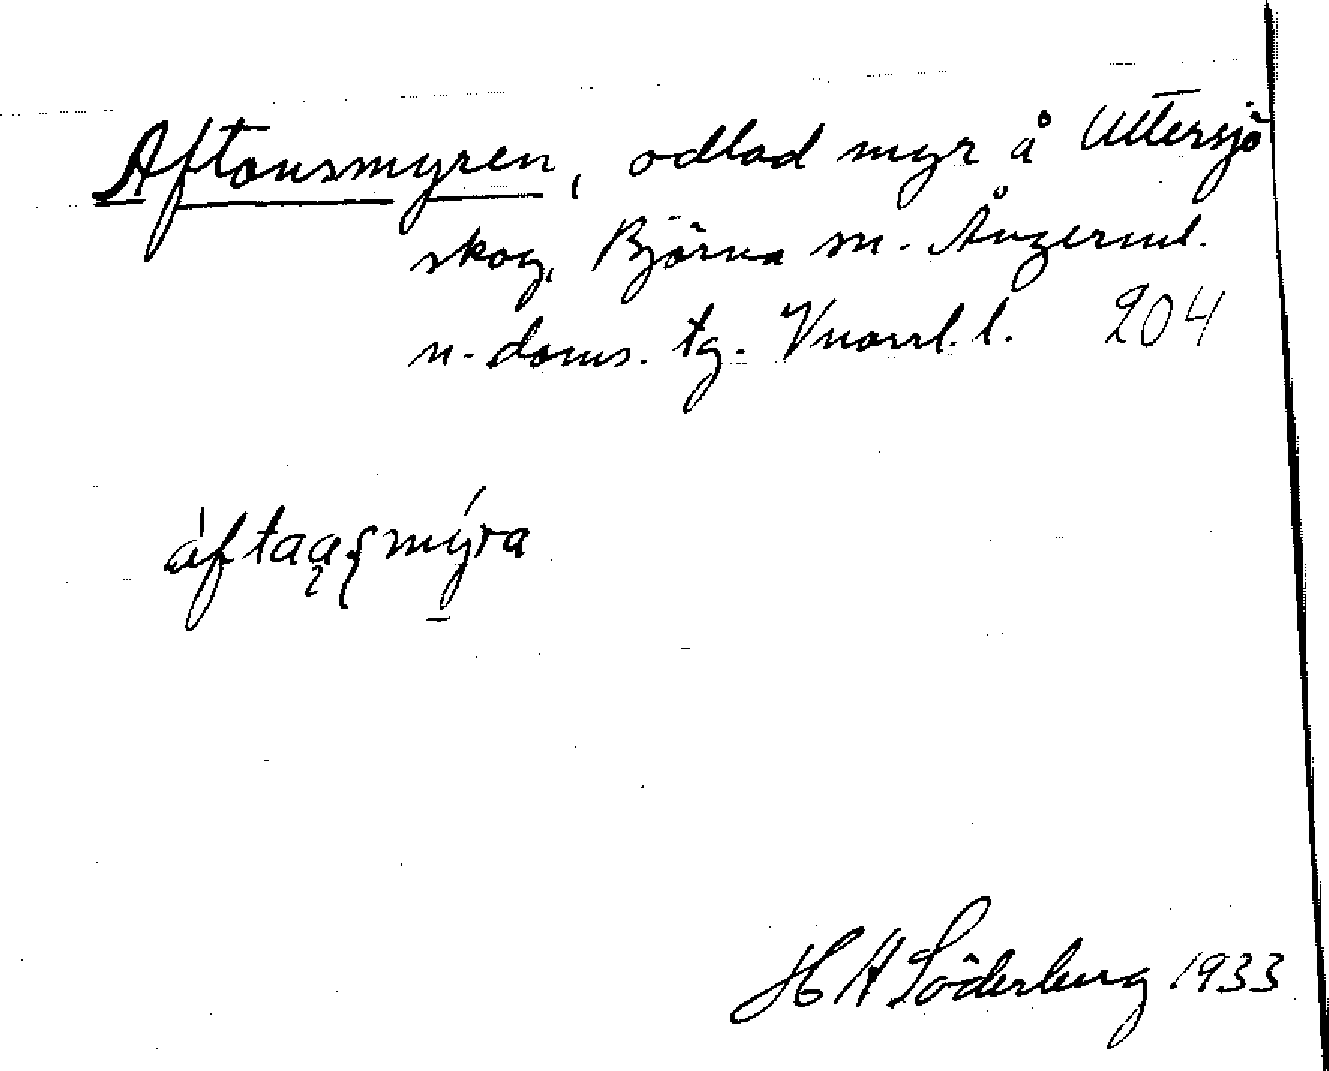 Aftonsmyren, odlad myr å Uttersjö
skog, Björna sn. Ångerml.
n. doms. tg. Vnorrl. l. 204
mýra
H H Söderberg 1933